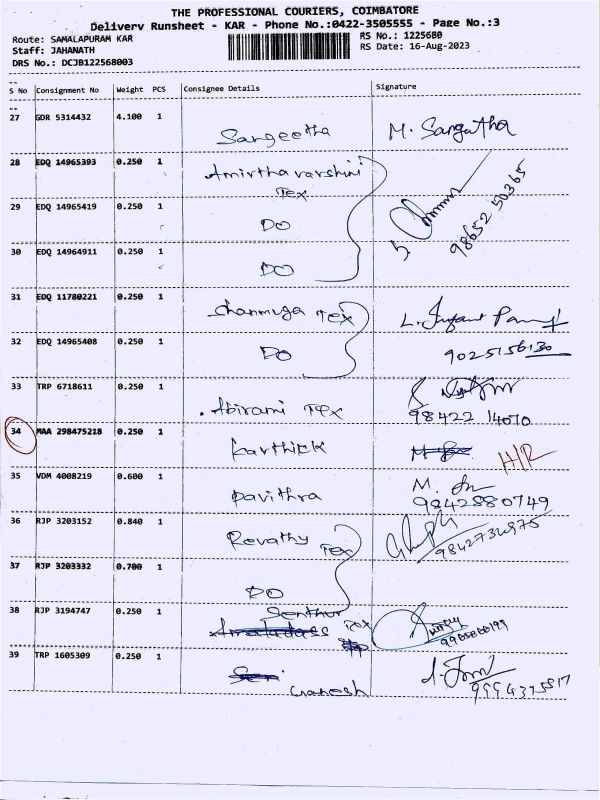 THE PROFESSIONAL COURIERS, COIMBATORE
Delivery Runsheet - KAR - Phone No.:0422-3505555 - Page No.:3
Route: SAMALAPURAM KAR RS No.: 1225680
Staff: JAHANATH RS Date: 16-Aug-2023
DRS No.: DCJB122568003
S No Consignment No Weight PCS Consignee Details Signature
27 GDR 5314432 4.100 1
Sangeetha M. Sangutha
28 EDQ 14965393 0.250 1
Amirthavarshini
Tex
29 EDQ 14965419 0.250 1
DO 98652 50365
30 EDQ 14964911 0.250 1
DO
31 EDQ 11780221 0.250 1
Shanmuga Tex
32 EDQ 14965408 0.250 1
DO 9025156130
33 TRP 6718611 0.250 1
Abirami Tex 98422 14070
34 MAA 298475218 0.250 1
Karthick H/R
35 VDM 4008219 0.600 1
Pavithra M.
9842580749
36 RJP 3203152 0.840 1
Revathy Tex 9842734975
37 RJP 3203332 0.700 1
DO
38 RJP 3194747 0.250 1
Senthur
Tex
39 TRP 1605309 0.250 1
Ganesh